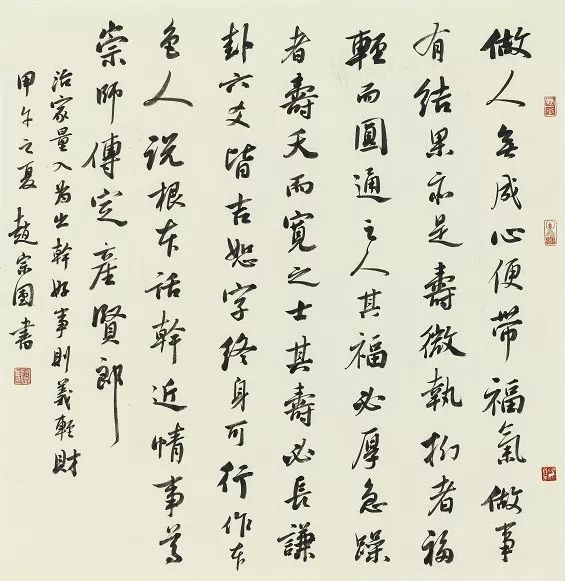 做人無成心便帶福氣做事
有結果亦是壽微執拗者福
輕而圓通之人其福必厚急躁
者壽夭而寬之士其壽必長謙
卦六爻皆吉恕字終身可行作本
色人說根本話幹近情事尊
崇師傅定產賢郎
治家量入為出幹好事則義輕財
甲午之夏 趙宗國書